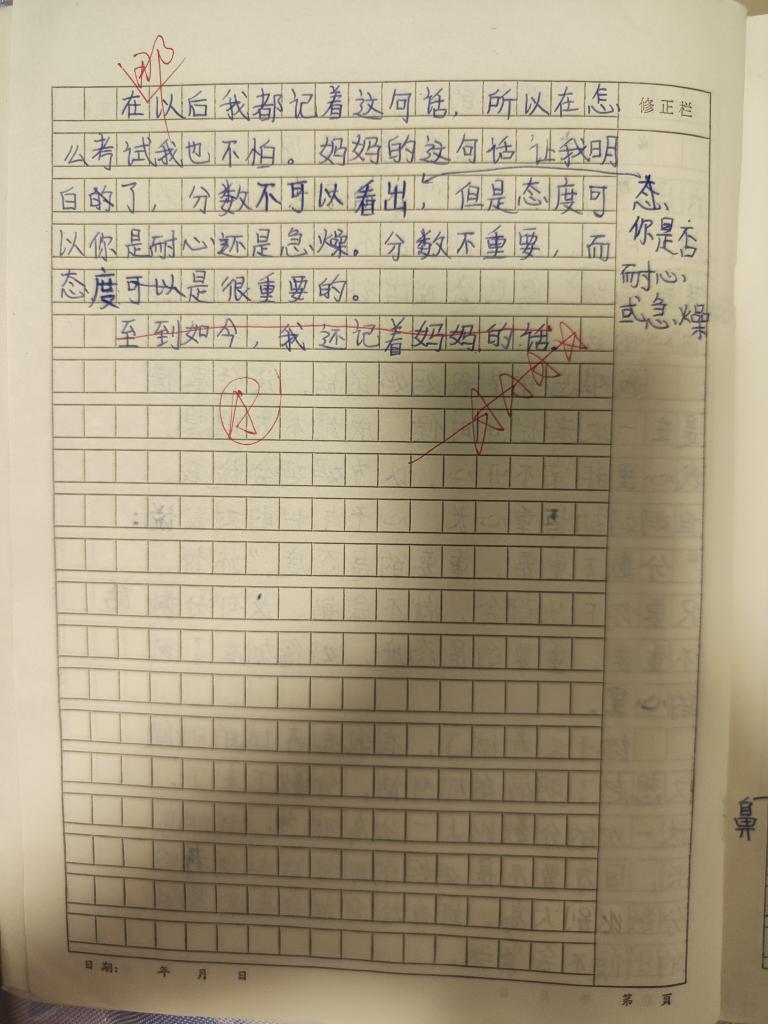 那
在以后我都记着这句话，所以在怎
修正栏
么考试我也不怕。妈妈的这句话让我明
白的了，分数不可以看出，但是态度可
以你是耐心还是急燥。分数不重要，而
态度可以是很重要的。
至到如今，我还记着妈妈的话。
态
你是否
耐心
或急燥
鼻
日期： 年 月 日
第 页